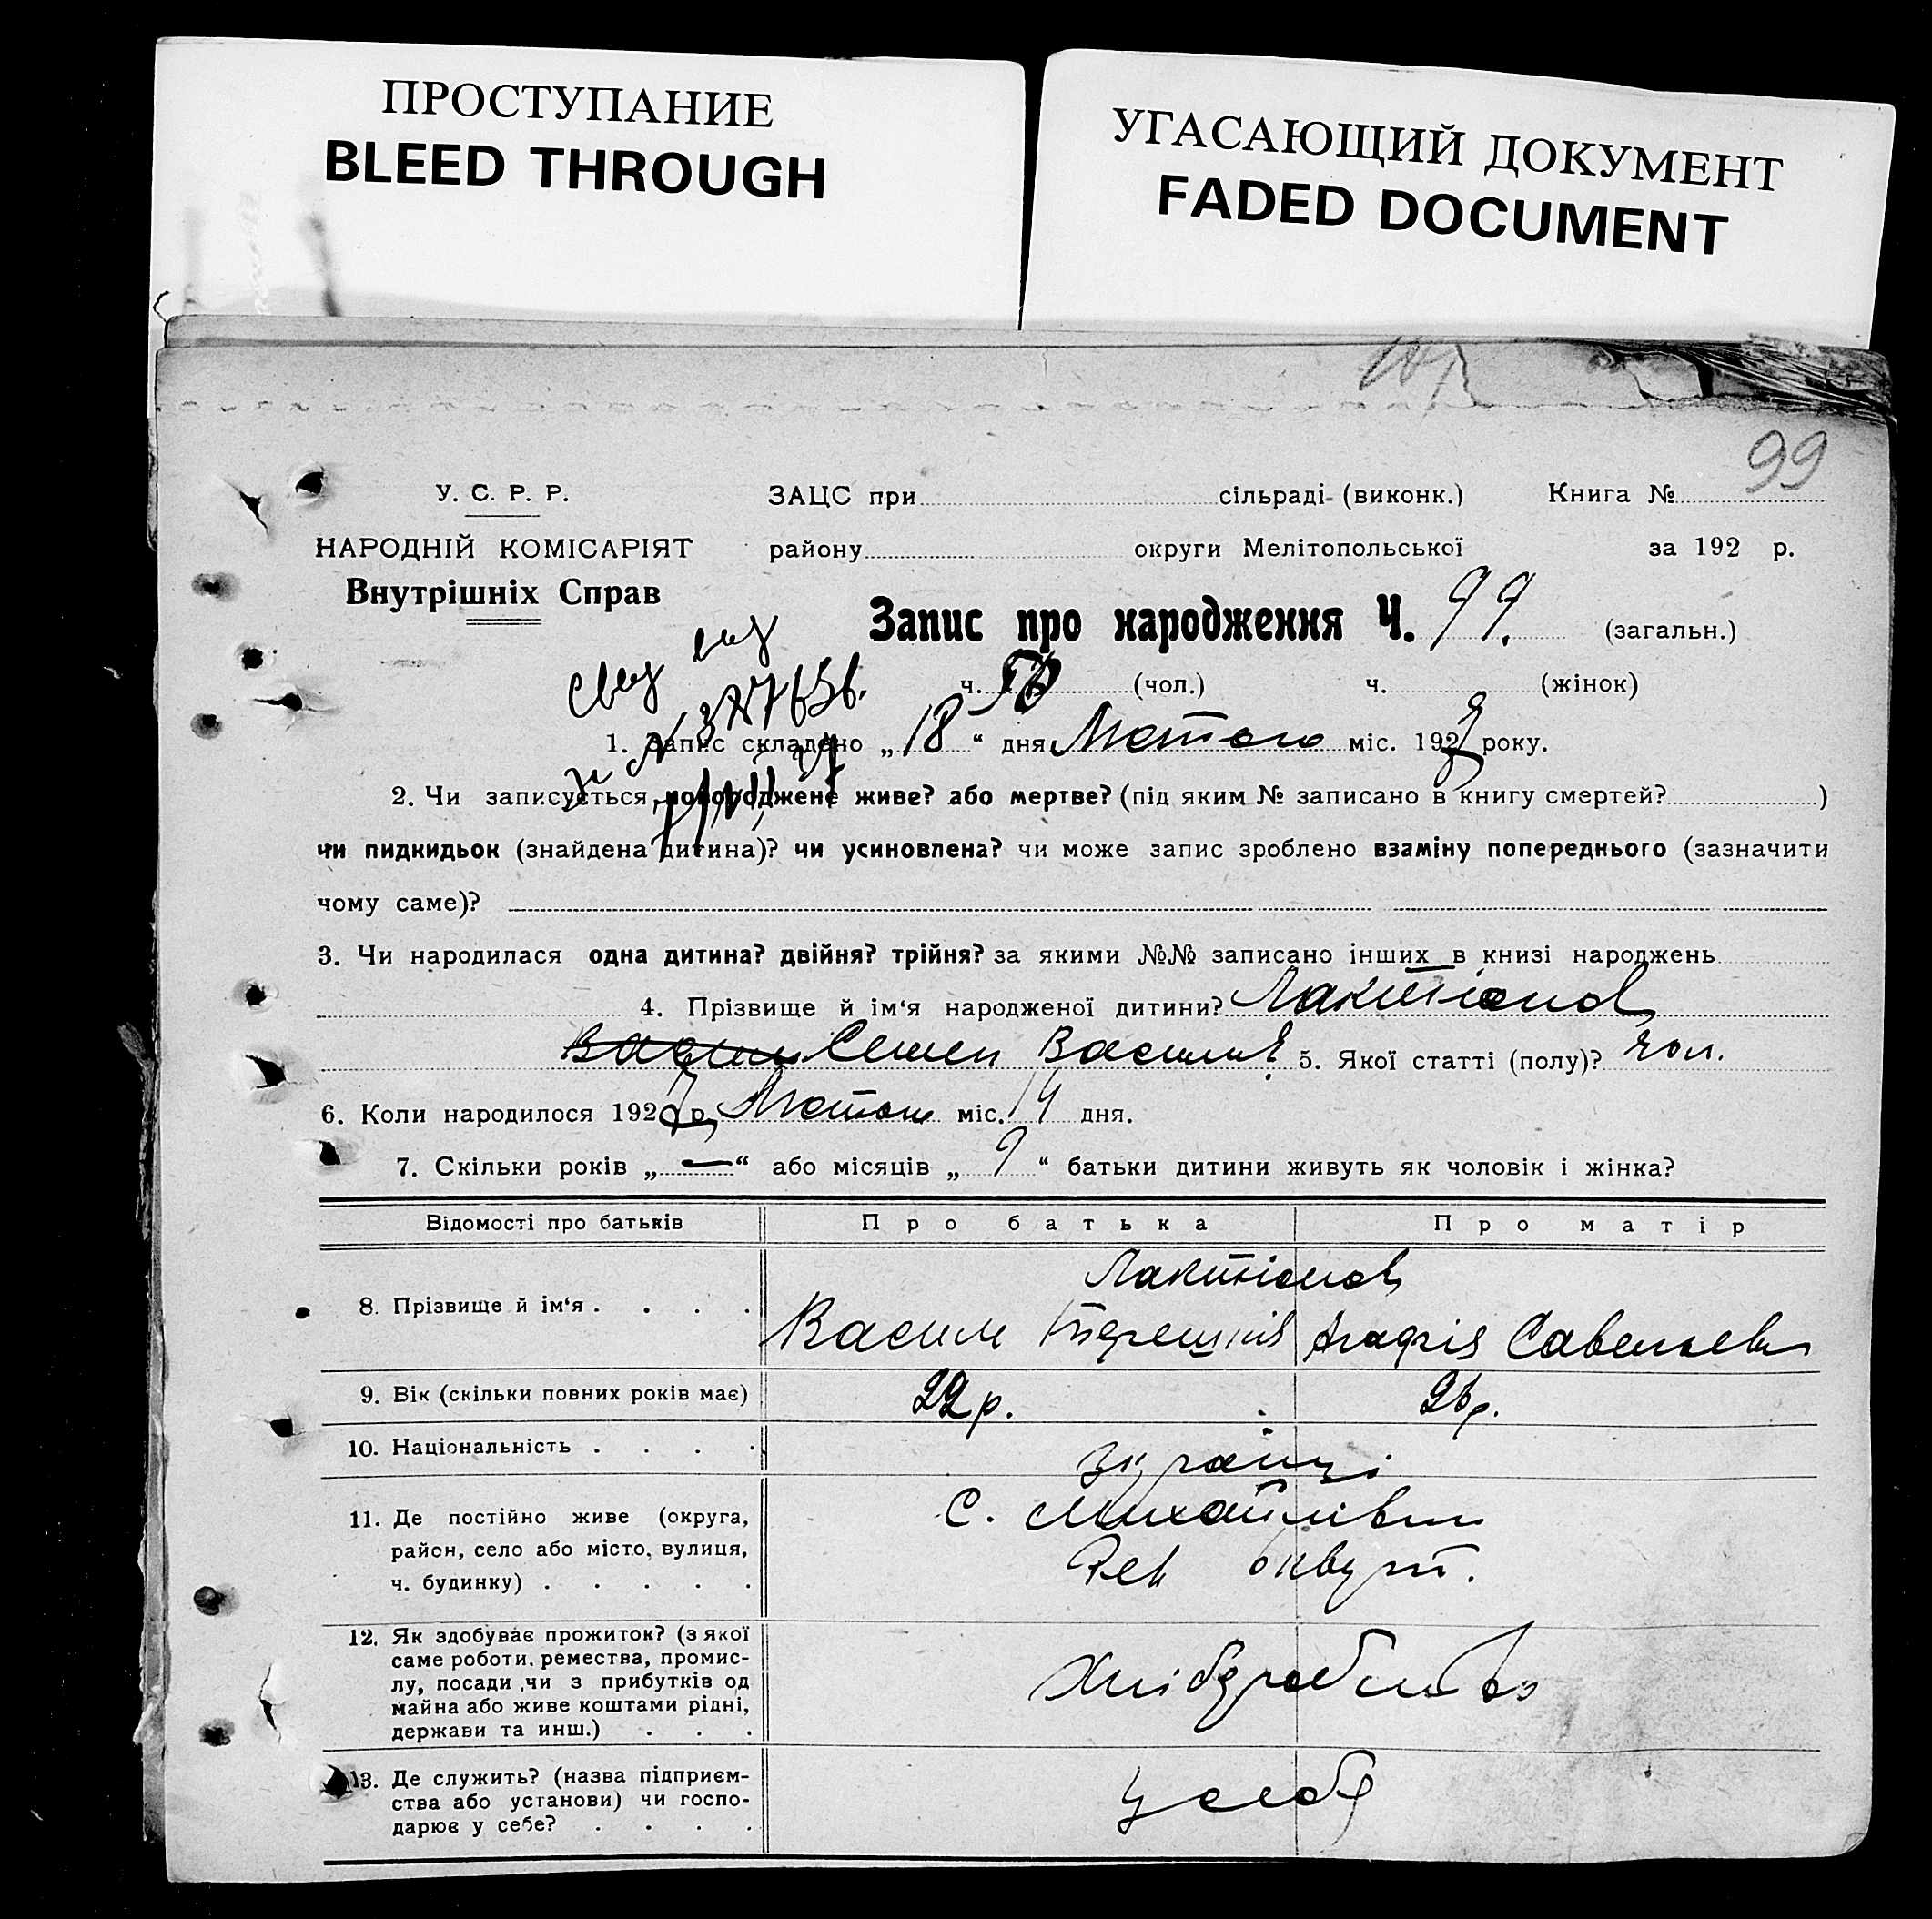 ПРОСТУПАНИЕ
BLEED THROUGH
УГАСАЮЩИЙ ДОКУМЕНТ
FADED DOCUMENT
99
У. С. Р. Р.
НАРОДНІЙ КОМІСАРІЯТ
Внутрішніх Справ
ЗАЦС при сільраді (виконк.) Книга №
району округи Мелітопольської за 192 р.
Запис про народження Ч. 99. (загальн.)
ч. (чол.) ч. (жінок)
1. Запис складено „18“ дня Лютого міс. 192 року.
2. Чи записується новороджене живе? або мертве? (під яким № записано в книгу смертей? )
чи пидкидьок (знайдена дитина)? чи усиновлена? чи може запис зроблено взаміну попереднього (зазначити
чому саме)?
3. Чи народилася одна дитина? двійня? трійня? за якими №№ записано інших в книзі народжень
4. Прізвище й ім‘я народженої дитини? Лактіонов
Семен 5. Якої статті (полу)? чол.
6. Коли народилося 192 р. міс. 14 дня.
7. Скільки років „—“ або місяців „9“ батьки дитини живуть як чоловік і жінка?
Відомості про батьків Про батька Про матір
Лактіонов
8. Прізвище й ім‘я . . . . Василь
9. Вік (скільки повних років має) 22 р. 26 р.
10. Національність . . . . Українці
11. Де постійно живе (округа,
район, село або місто, вулиця,
ч. будинку) . . . . .
С. Михайлівки
12. Як здобуває прожиток? (з якої
саме роботи, ремества, промис-
лу, посади чи з прибутків од
майна або живе коштами рідні,
держави та инш.) . . .
Хліборобство
13. Де служить? (назва підприєм-
ства або установи) чи госпо-
дарює у себе? . . . .
У себе